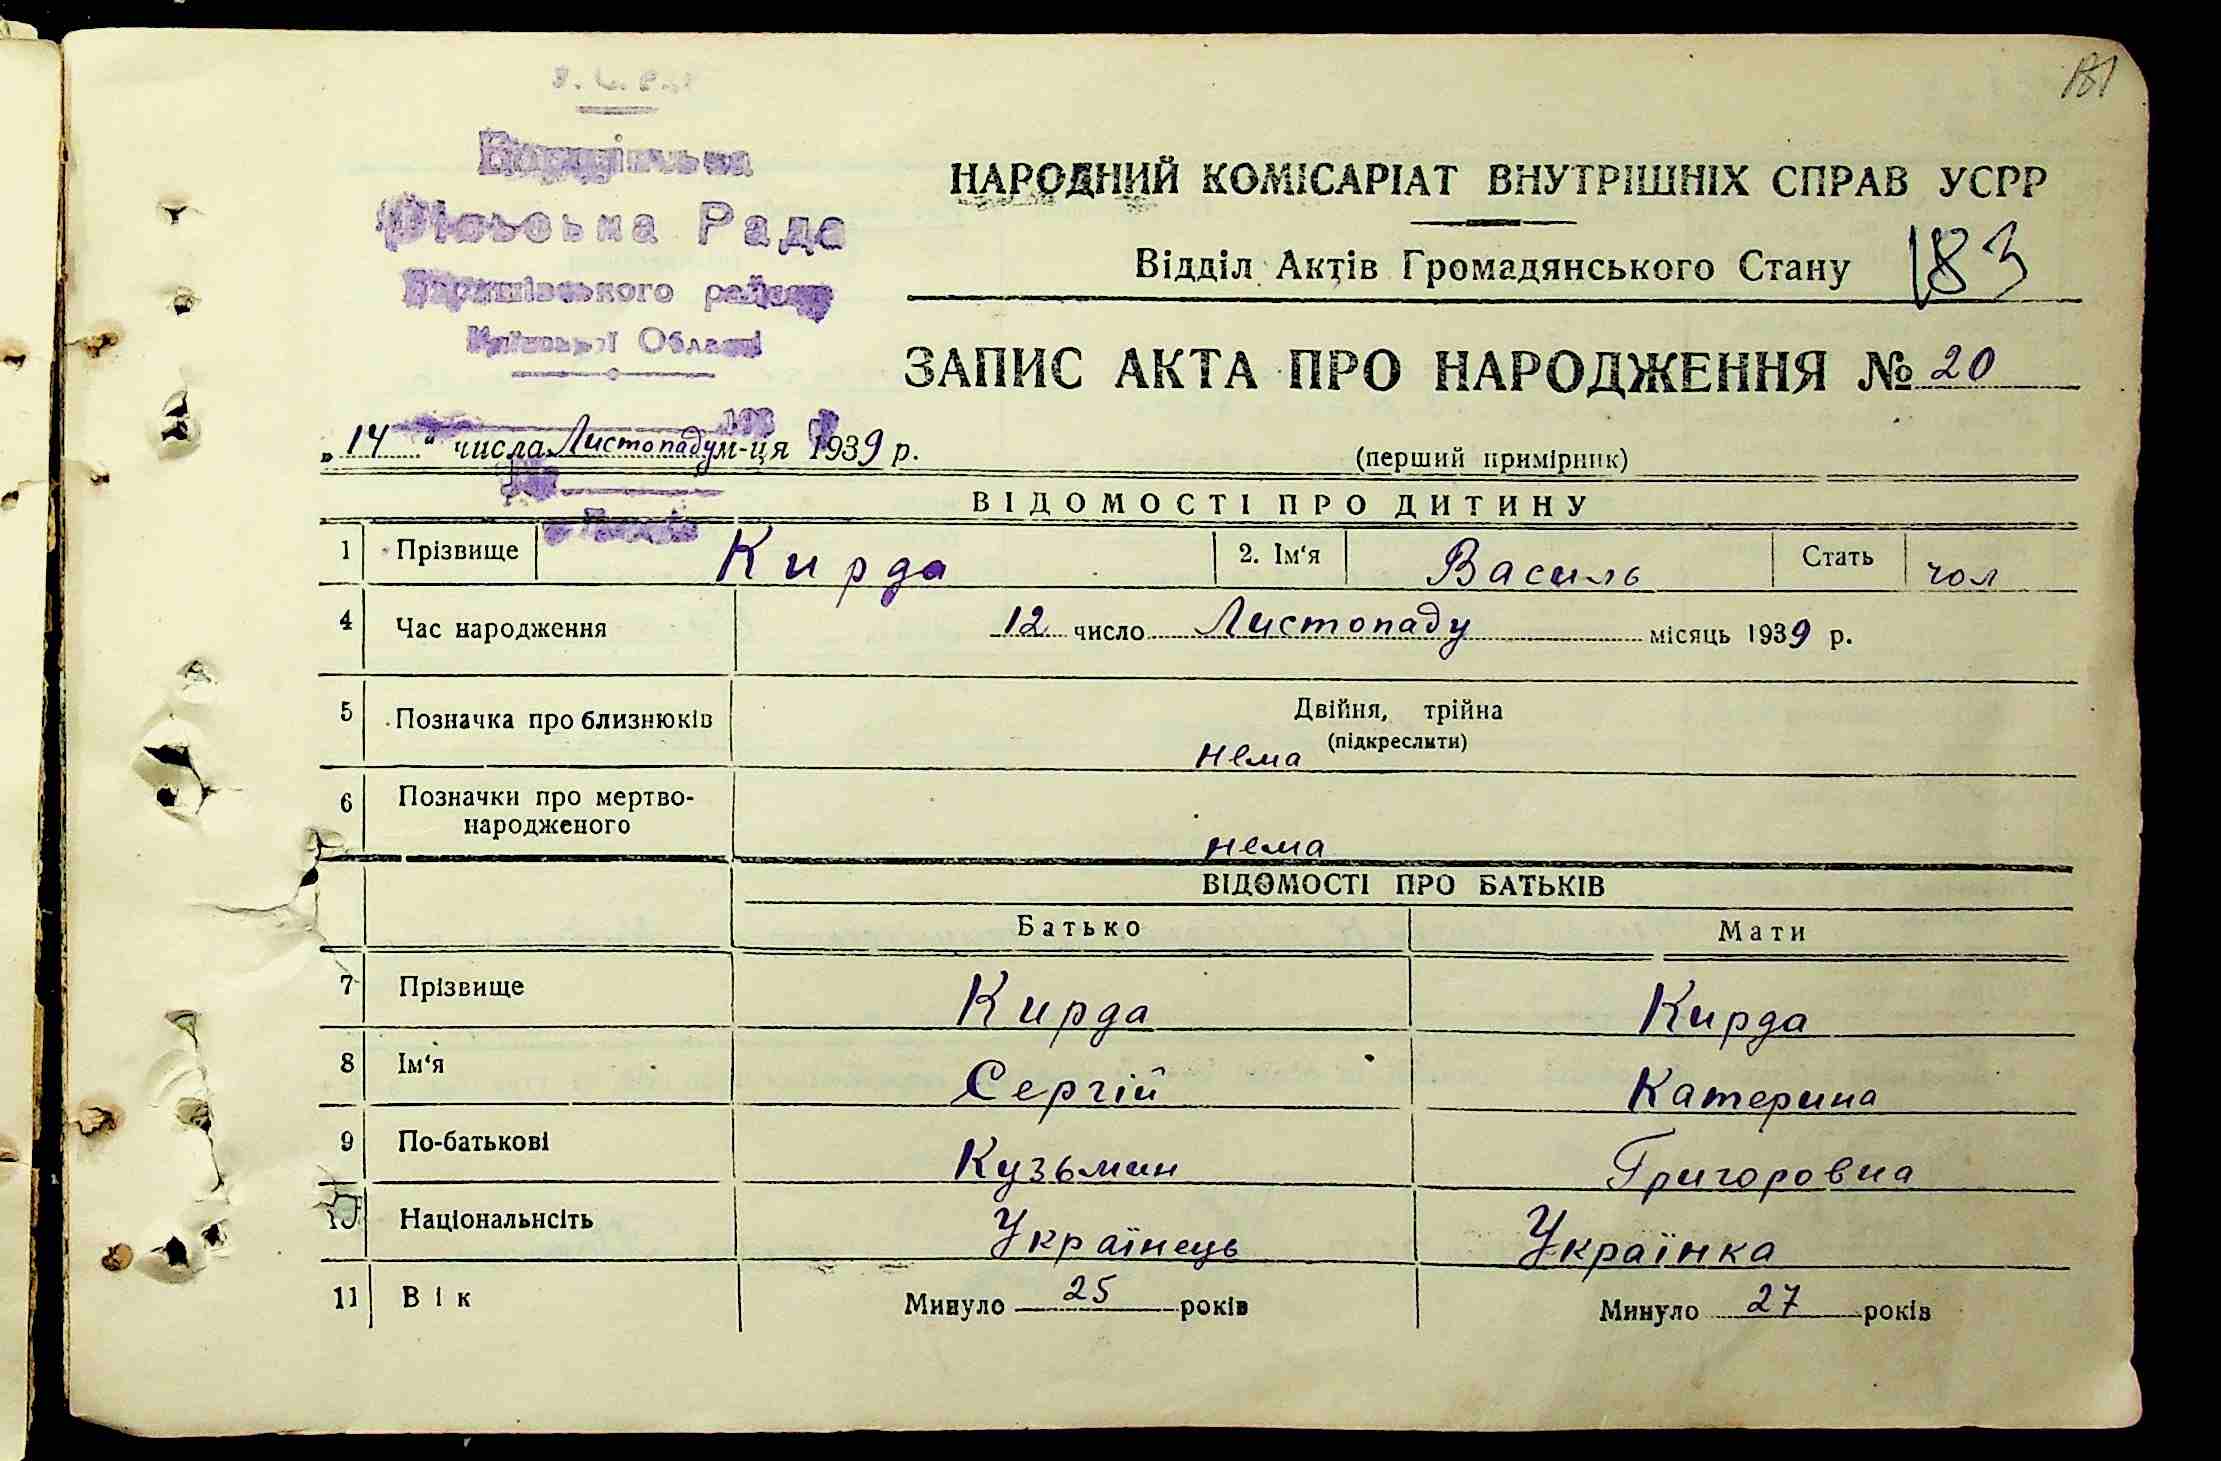 181
Рада
району
Київської Області
НАРОДНИЙ КОМІСАРІАТ ВНУТРІШНІХ СПРАВ УСРР
Відділ Актів Громадянського Стану 183
ЗАПИС АКТА ПРО НАРОДЖЕННЯ № 20
„14“ числа Листопаду м-ця 1939 р.
(перший примірник)
ВІДОМОСТІ ПРО ДИТИНУ
1 Прізвище Кирда 2. Ім'я Василь Стать чол
4 Час народження 12 число Листопаду місяць 1939 р.
5 Позначка про близнюків Двійня, трійна
(підкреслити)
нема
6 Позначки про мертво-
народженого
нема
ВІДОМОСТІ ПРО БАТЬКІВ
Батько Мати
7 Прізвище Кирда Кирда
8 Ім'я Сергій Катерина
9 По-батькові Кузьмин Григоровна
10 Національнсіть Українець Українка
11 Вік Минуло 25 років Минуло 27 років